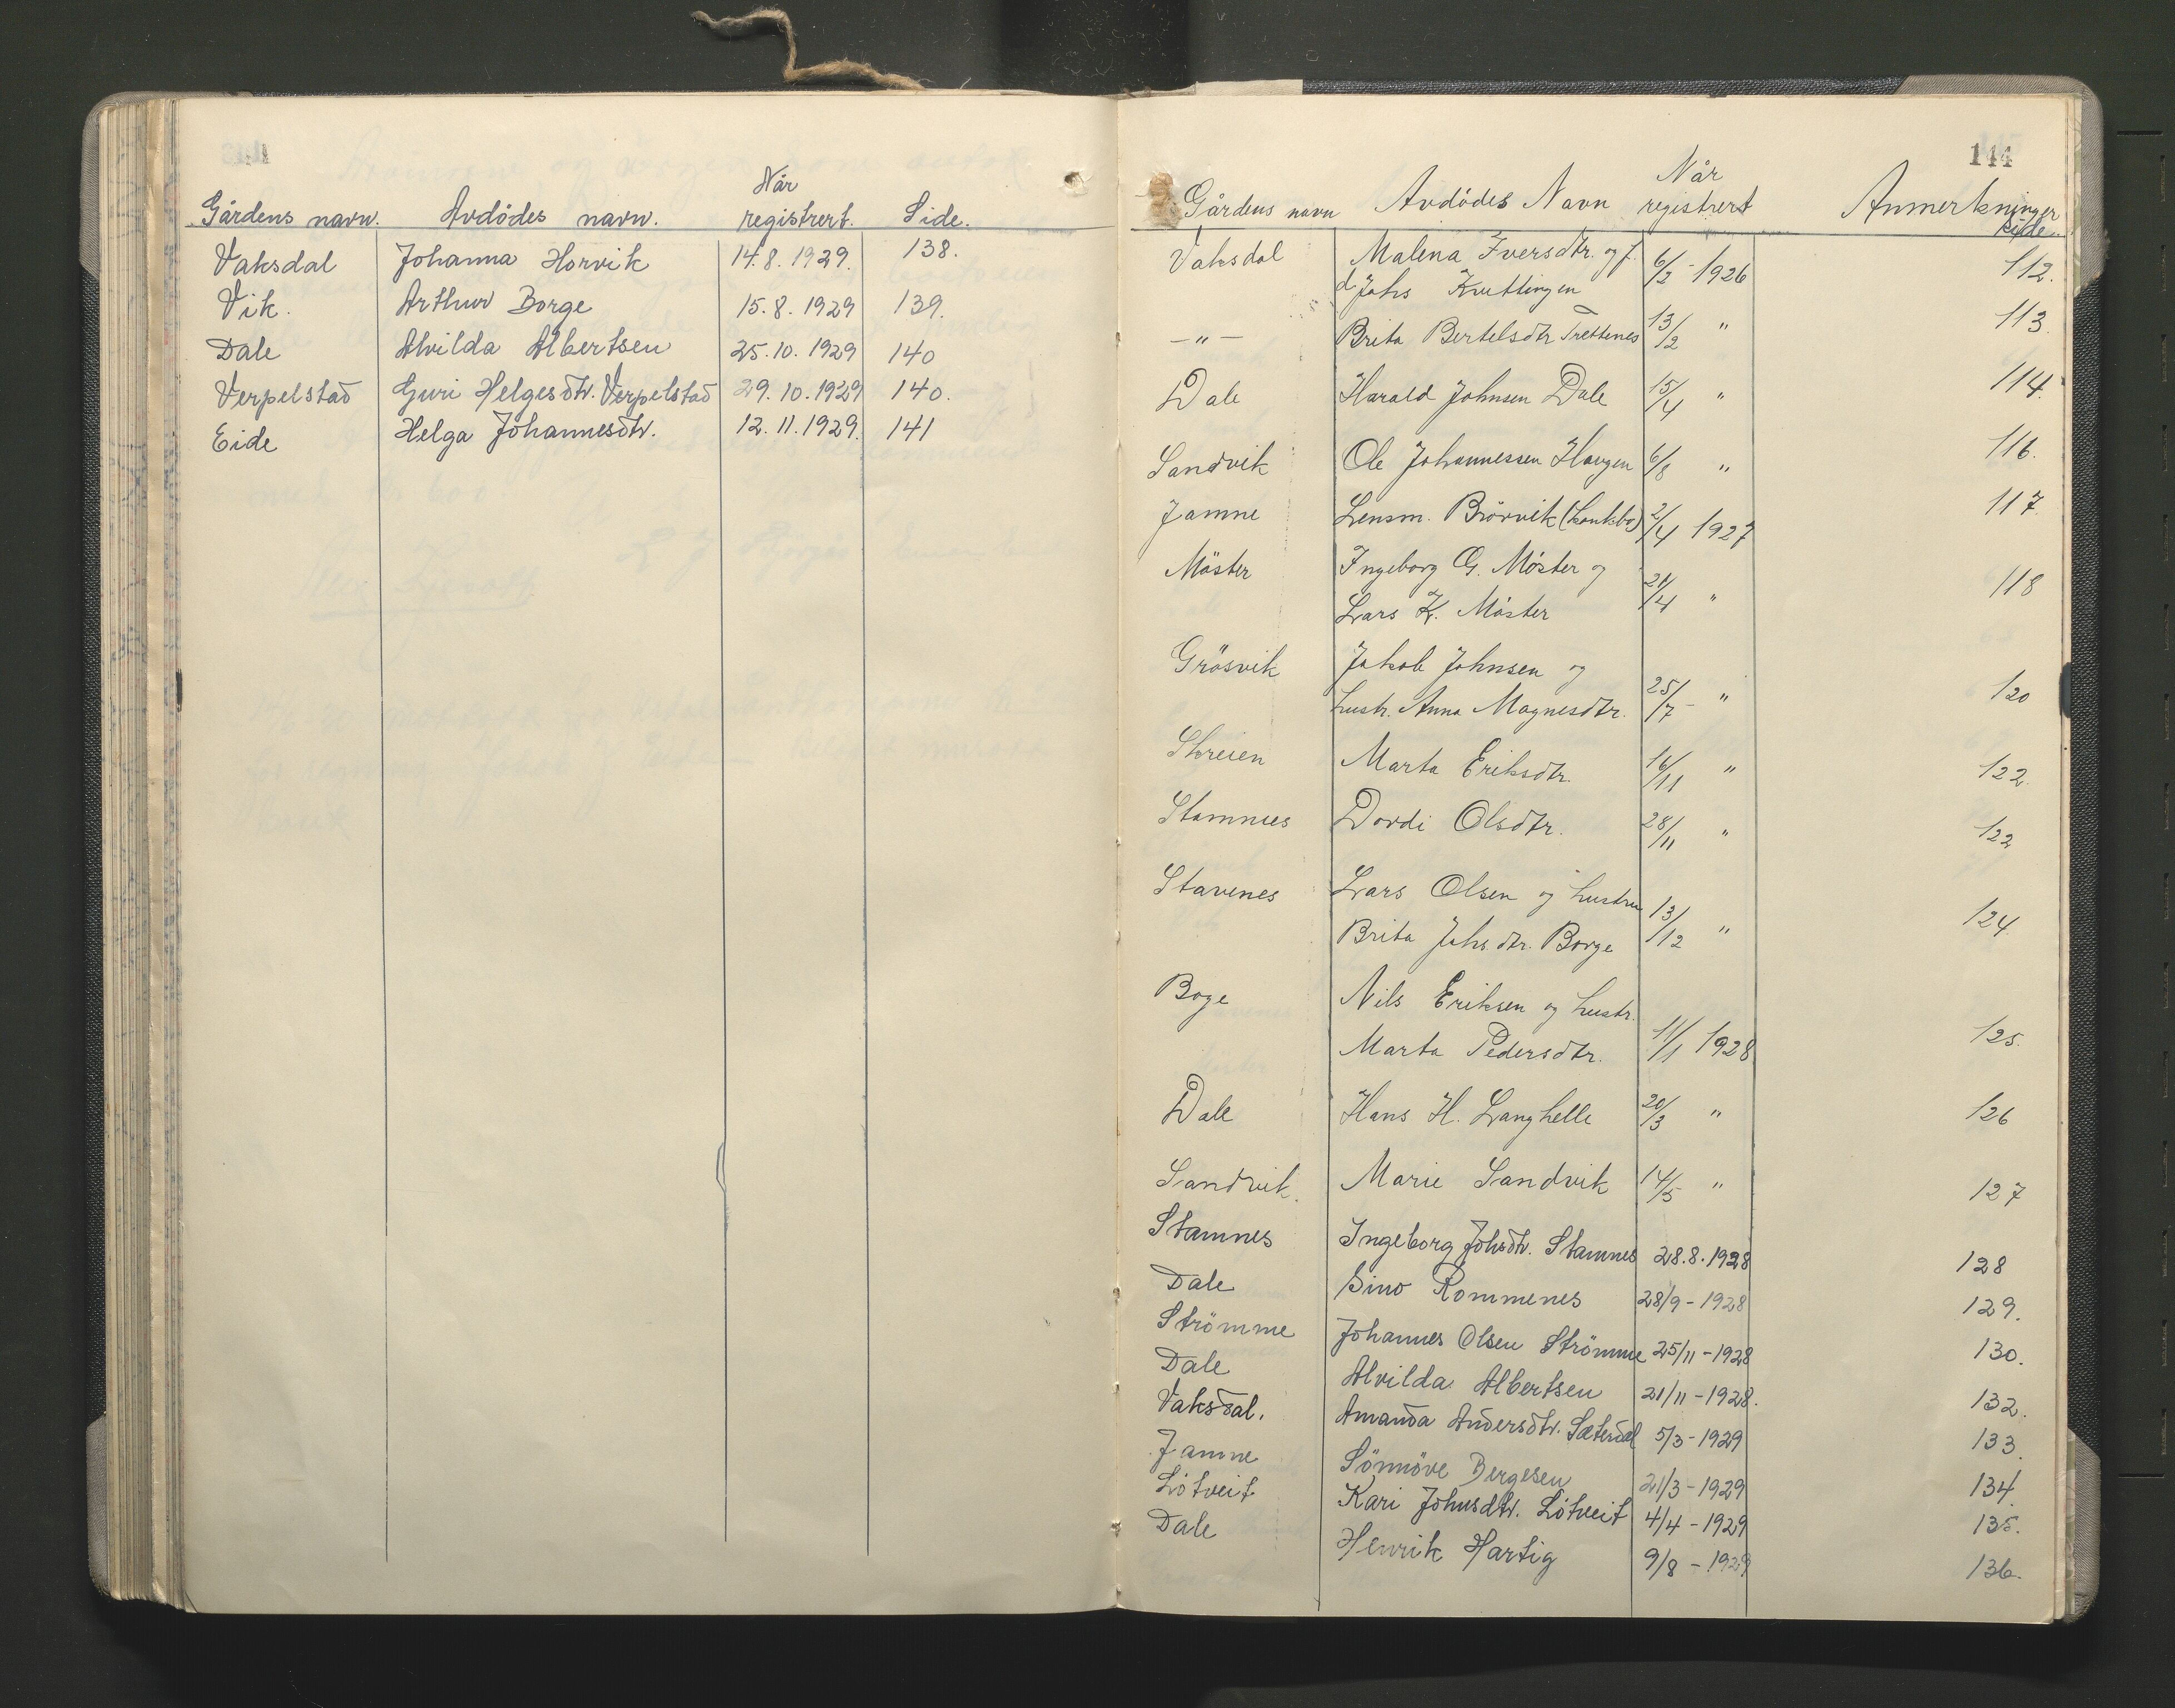 Når
Gårdens navn. Avdödes navn. registrert. Side.
Vaksdal Johanna Horvik 14.8.1929. 138.
Vik. Arthur Borge 15.8.1929 139.
Dale Alvilda Albertsen 25.10.1929 140
Verpelstad Guri Helgesdtr. Verpelstad 29.10.1929 140.
Eide Helga Johannesdtr. 12.11.1929. 141
144
Når
Gårdens navn Avdödes Navn registrert Anmerkninger
Side.
Vaksdal Malena Iversdtr. og f. 6/2 - 1926 112.
d Johs
Brita Bertelsdtr Trettenes 13/2 " 113.
- " -
Dale Harald Johnsen Dale 15/4 " 114.
Sandvik Ole Johannessen Haugen 6/8 " 116.
Jamne Lensm. Brörvik (konkbo) 2/4 1927 117.
Möster Ingeborg G. Möster og 21/4 " 118
Lars K. Möster
Grösvik Jakob Johnsen og
hustr. Anna Magnesdtr. 25/7 - " 120
Skreien Marta Eriksdtr. 16/11 " 122.
Stamnes Dordi Olsdtr. 28/11 " 122
Stavenes Lars Olsen og hustru 13/12 " 124.
Brita Johs.dtr. Borge
Boge Nils Eriksen og hustr.
Marta Pedersdtr. 11/1 1928 125.
Dale Hans H. Langhelle 20/3 " 126
Sandvik. Marie Sandvik 14/5 " 127
Stamnes Ingeborg Johsdtr. Stamnes 28.8.1928 128
Dale Sina Rommenes 28/9 - 1928 129.
Strömme Johannes Olsen Strömme 25/11 - 1928 130.
Dale Alvilda Albertsen 21/11 - 1928. 132.
Vaksdal. Amanda Andersdtr. Sæterdal 5/3 - 1929 133.
Jamne Sönnöve Bergesen 21/3 - 1929 134.
Lötveit Kari Johnsdtr. Lötveit 4/4 - 1929 135.
Dale Henrik Hartig 9/8 - 1929 136.